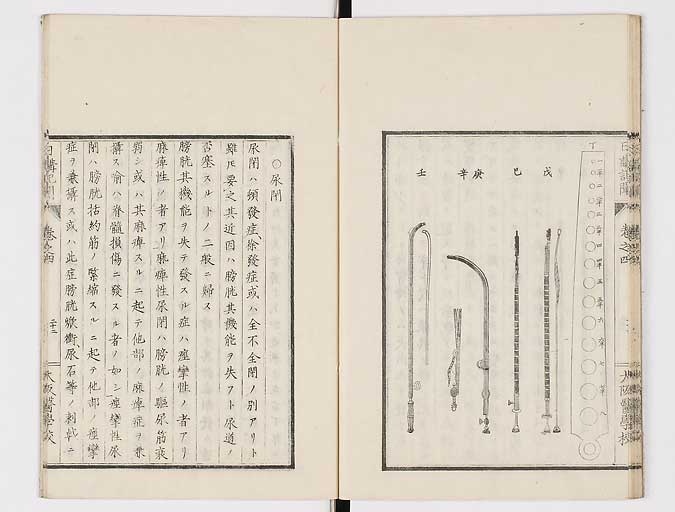 丁
一
二
三
四
五
六
七
八
戊
己
庚
辛
壬
日講記聞
卷之四
大阪醫學校
〇尿閉
尿閉ハ頓發症徐發症或ハ全不全閉ノ別アリト
雖𪜈要之其近因ハ膀胱其機能ヲ失フト尿道ノ
否塞スルトノ二般ニ歸ス
膀胱其機能ヲ失テ發スル症ハ痙攣性ノ者アリ
麻痺性ノ者アリ麻痺性尿閉ハ膀胱ノ驅尿筋衰
弱シ或ハ其麻痺スルニ起テ他部ノ麻痺症ヲ兼
攝ス喻ハ脊髓損傷ニ發スル者ノ如シ痙攣性尿
閉ハ膀胱括約筋ノ緊縮スルニ起テ他部ノ痙攣
症ヲ兼攝ス或ハ此症膀胱㷔衝尿石等ノ刺戟ニ
日講記聞
卷之四
二十二
大阪醫學校